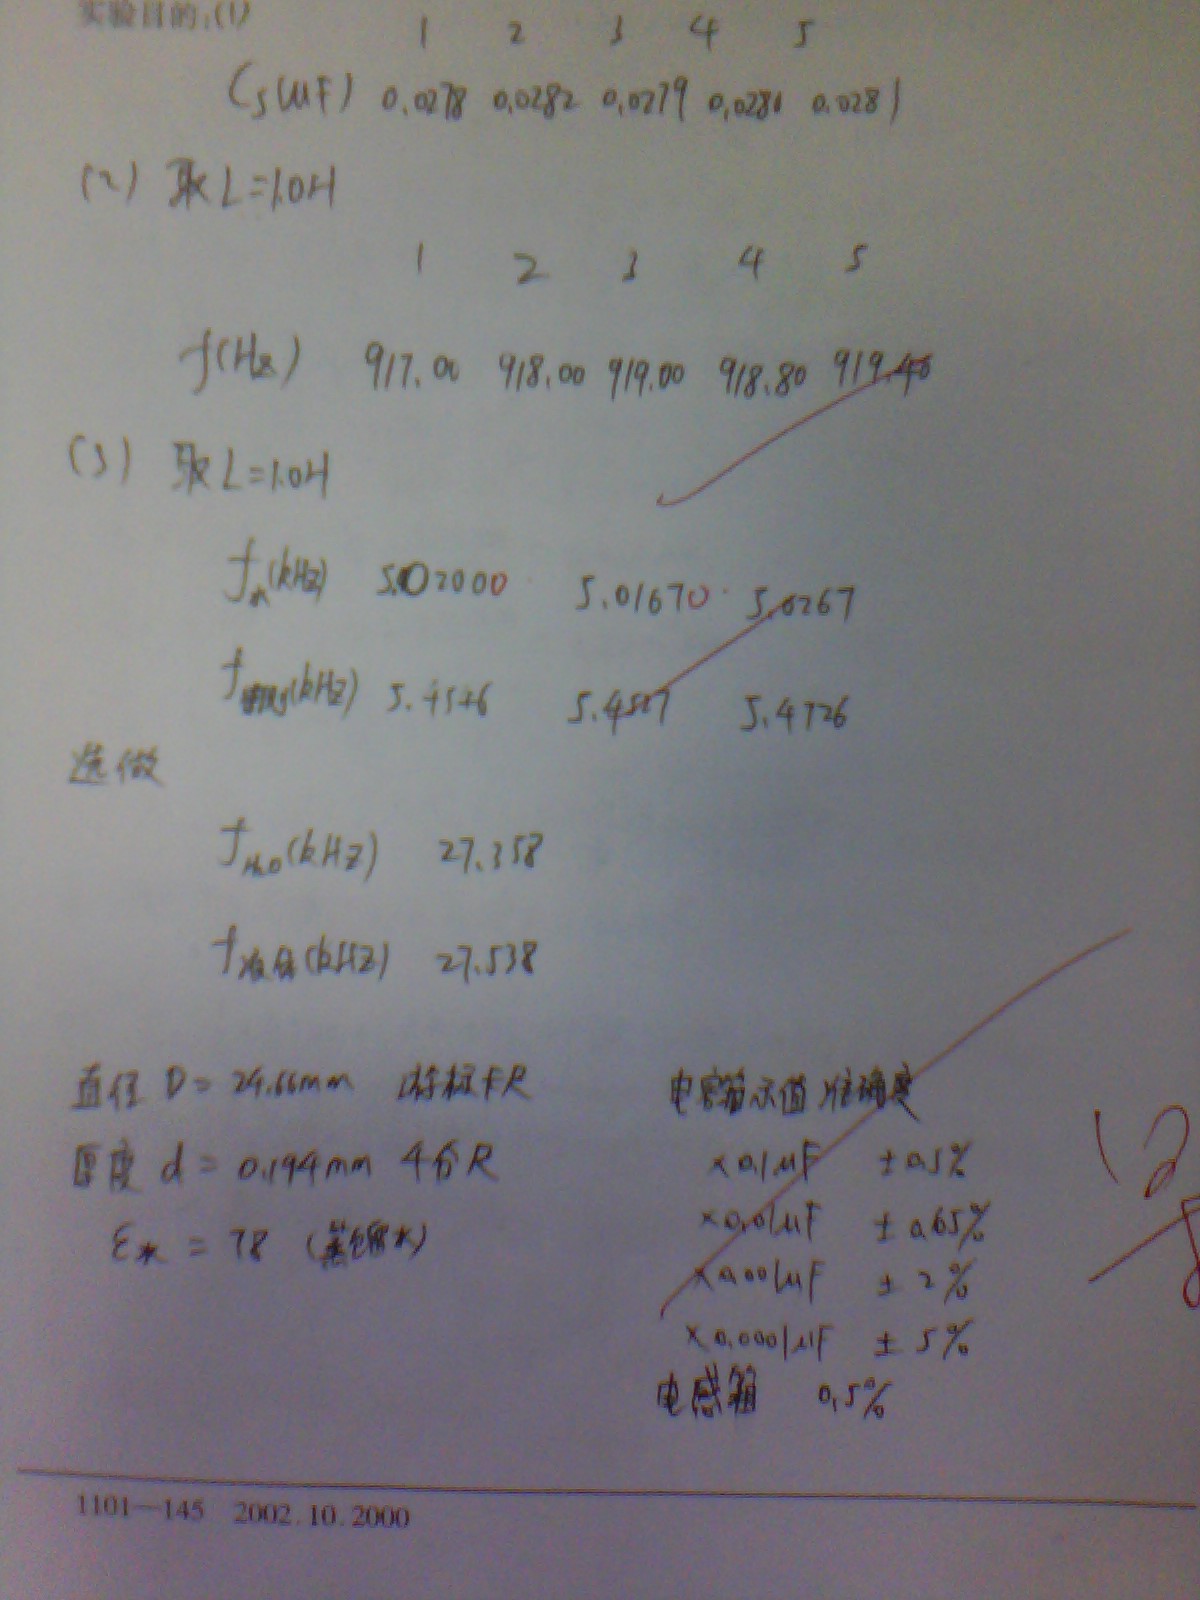 实验目的:(1)
1 2 3 4 5
Cs(μF) 0.0278 0.0282 0.0279 0.0280 0.0281
(2) 取L=1.0H
1 2 3 4 5
f(Hz) 917.00 918.00 919.00 918.80 919.40
(3) 取L=1.0H
f (kHz) 5.02000 5.01670 5.0267
f (kHz) 5.4546 5.4726
选做
fH₂O(kHz) 27.358
f液体(kHz) 27.538
直径 D=24.66mm 游标卡尺
电容箱示值 准确度
厚度 d=0.194mm 千分尺
×0.1μF ±0.5%
×0.01μF ±0.65%
ε水=78 (蒸馏水)
×0.001μF ±2%
×0.0001μF ±5%
电感箱 0.5%
1101—145 2002.10.2000